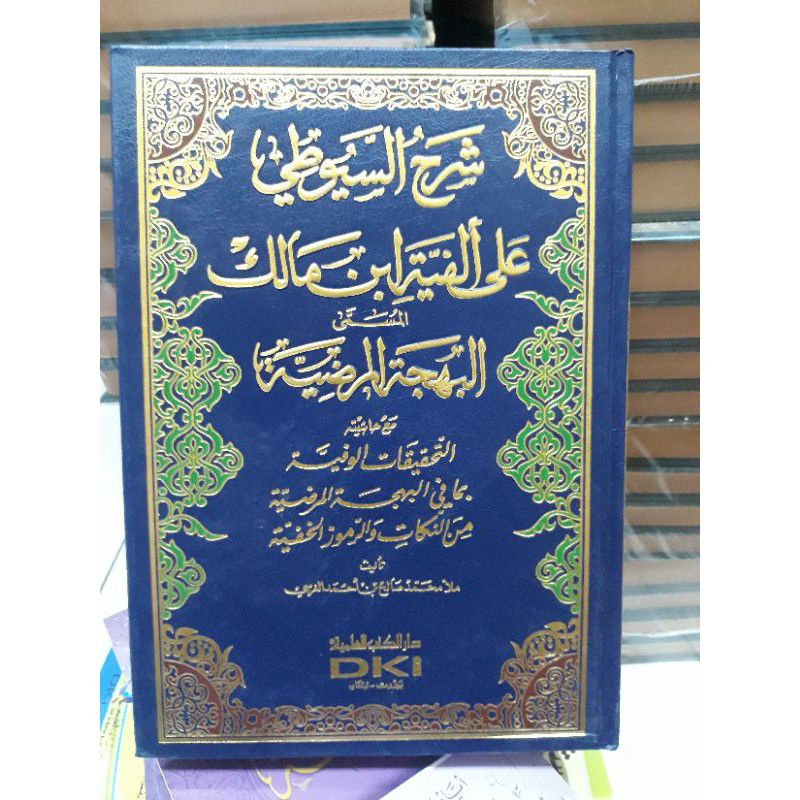 شرح السيوطي
على ألفية ابن مالك
المسمى
البهجة المرضية
مع حاشيته
التحقيقات الوفية
بما في البهجة المرضية
من النكات والرموز الخفية
تأليف
ملا محمد صالح بن أحمد الغرسي
دار الكتب العلمية
DKI
بيروت - لبنان